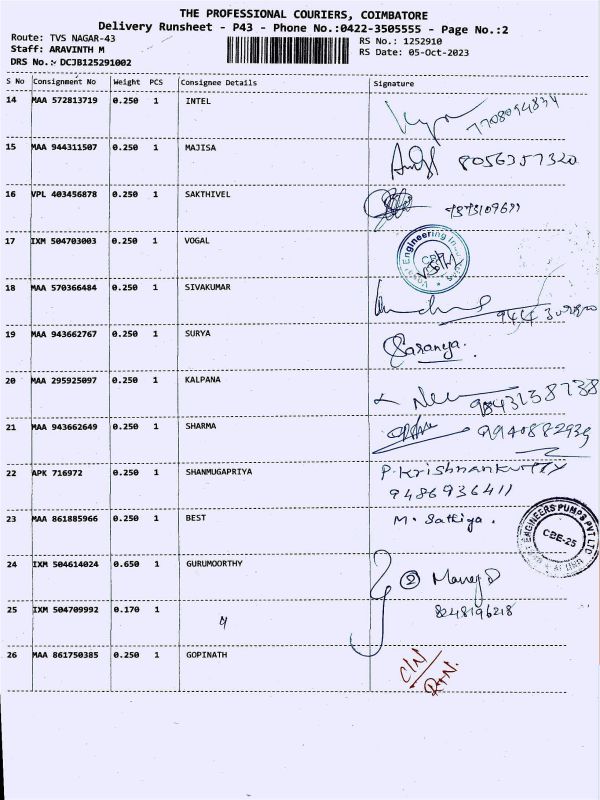 THE PROFESSIONAL COURIERS, COIMBATORE
Delivery Runsheet - P43 - Phone No.:0422-3505555 - Page No.:2
Route: TVS NAGAR-43
RS No.: 1252910
Staff: ARAVINTH M
RS Date: 05-Oct-2023
DRS No.: DCJB125291002
S No Consignment No Weight PCS Consignee Details Signature
14 MAA 572813719 0.250 1 INTEL
7708094834
15 MAA 944311507 0.250 1 MAJISA
8056357320
16 VPL 403456878 0.250 1 SAKTHIVEL
17 IXM 504703003 0.250 1 VOGAL
18 MAA 570366484 0.250 1 SIVAKUMAR
19 MAA 943662767 0.250 1 SURYA
Saranya.
20 MAA 295925097 0.250 1 KALPANA
9843138738
21 MAA 943662649 0.250 1 SHARMA
9940882939
22 APK 716972 0.250 1 SHANMUGAPRIYA P.Krishnankutty
9486936411
23 MAA 861885966 0.250 1 BEST M. Sathiya.
ENGINEERS PUMPS PVT LTD
CBE-25
24 IXM 504614024 0.650 1 GURUMOORTHY
2 Manoj
25 IXM 504709992 0.170 1 8248196218
26 MAA 861750385 0.250 1 GOPINATH C/N